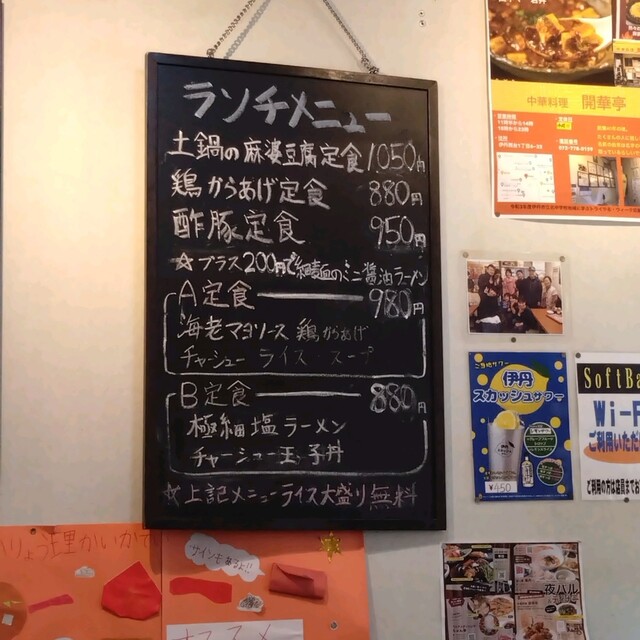 ランチメニュー
土鍋の麻婆豆腐定食 1050円
鶏からあげ定食 880円
酢豚定食 950円
☆プラス200円で細麺のミニ醤油ラーメン
A定食 980円
海老マヨソース 鶏からあげ
チャーシュー ライス・スープ
B定食 880円
極細塩ラーメン
チャーシュー玉子丼
☆上記メニューライス大盛り無料
中華料理 開華亭
ご当地サワー
伊丹
スカッシュサワー
¥450
SoftBa
Wi-F
ご利用いただ
ご利用の方は店員まで
サインもあるよ!!
夜バル